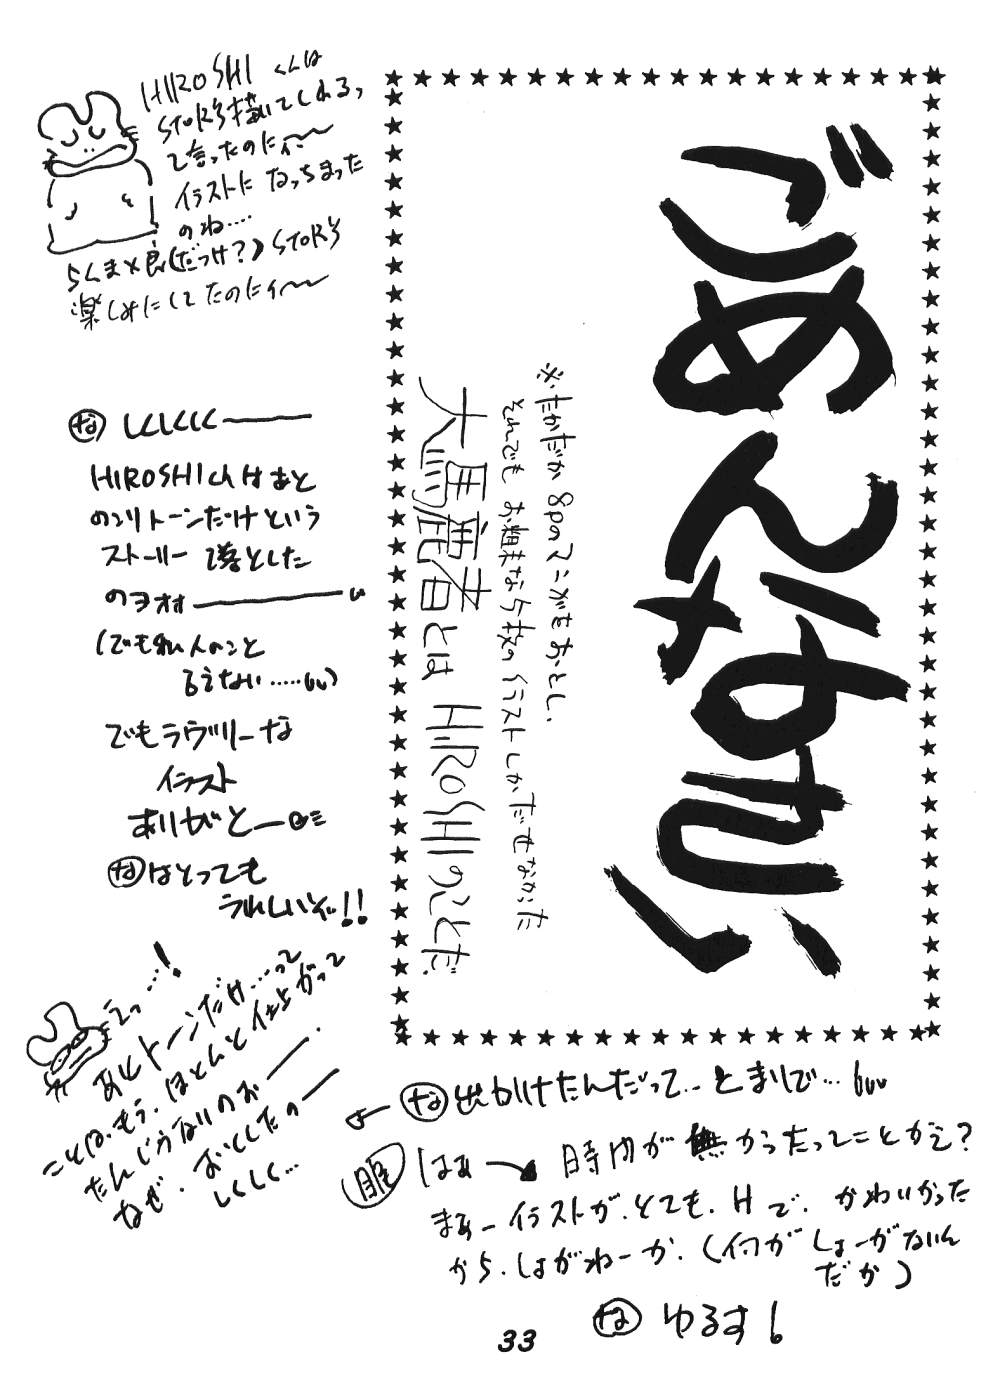 HIROSHIくんは
STORY描いてくれる、
て言ったのにィ〜
イラストに なっちまった
のね....
らくまメ良(だっけ?)STORY
楽しみにしてたのにィ〜
ごめんなさい
※たかだか8pのマンガをおとし、
それでもお粗末な5枚のイラストしかだせなかった
大馬鹿者とは HIROSHIのことだ
な しくしくしく――
HIROSHIくんはあと
のこりトーンだけという
ストーリーて落とした
のヲオォ――
(でも私人のこと
言えない.....)
でもラヴリーな
イラスト
ありがとー
なはとっても
うれしいぞ!!
えっ...!
あとトーンだけ...って
ことは、もう、ほとんど仕上がって
たんじゃないのぉ――.
なぜ、おとしたの――
しくしく...
な 出かけたんだって... とまりで...
はぁ 時間が無かったってことがえ?
まぁー イラストが、とても、Hで、かわいかった
から、しょがねーか、(何がしょーがないん
だか)
な ゆるす!
33